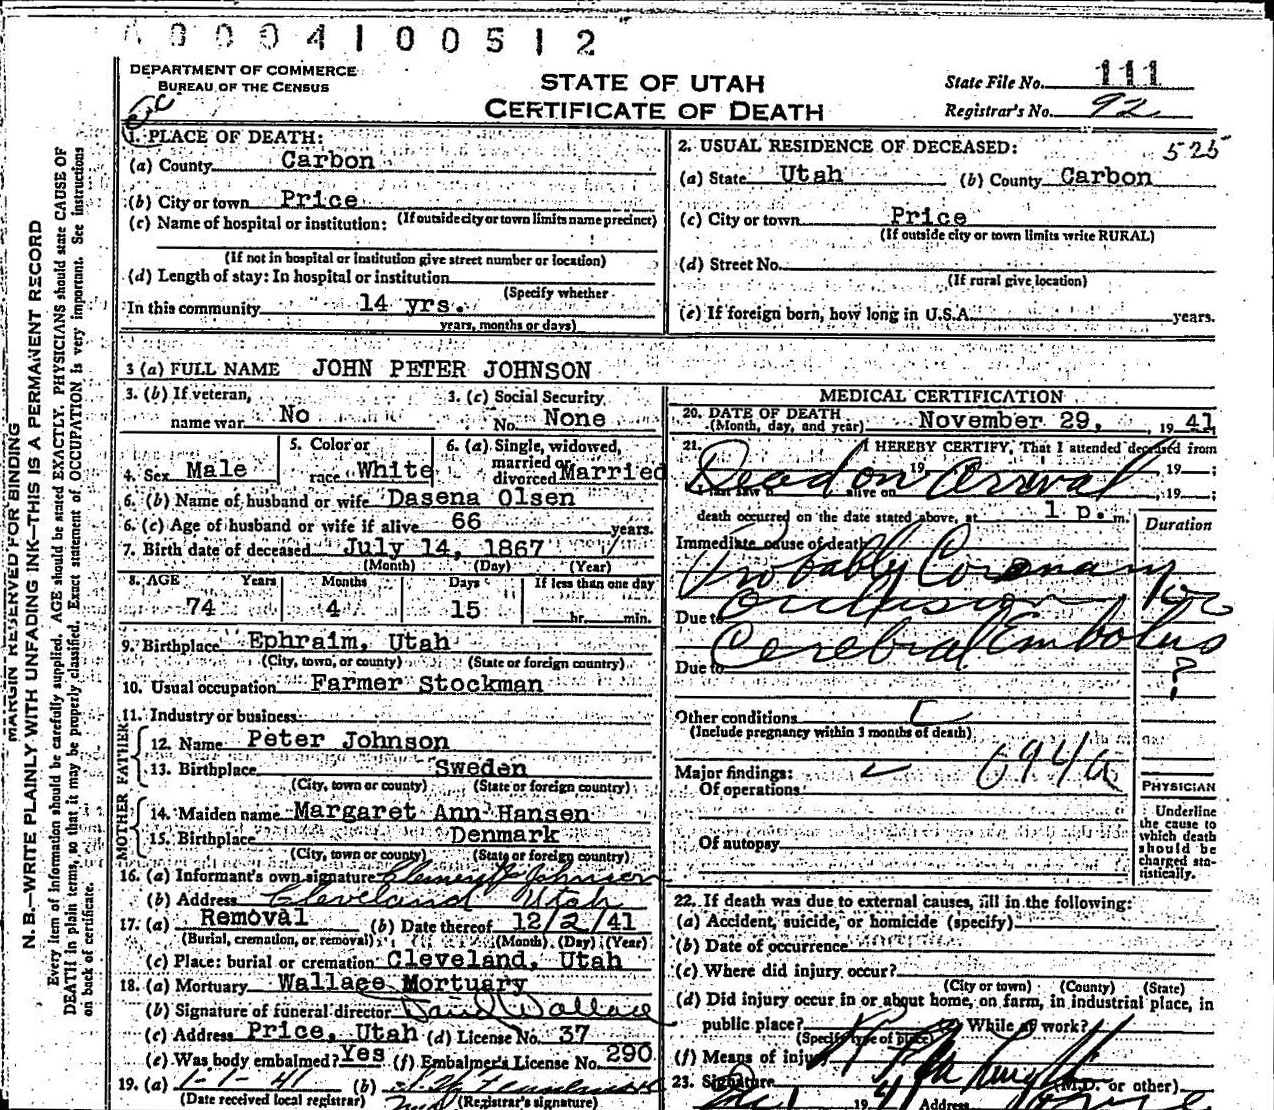 0004100512
DEPARTMENT OF COMMERCE
BUREAU OF THE CENSUS
STATE OF UTAH
CERTIFICATE OF DEATH
State File No. 111
Registrar's No. 92
525
1. PLACE OF DEATH:
(a) County Carbon
(b) City or town Price
(If outside city or town limits name precinct)
(c) Name of hospital or institution:
(If not in hospital or institution give street number or location)
(d) Length of stay: In hospital or institution
(Specify whether
In this community 14 yrs.
years, months or days)
2. USUAL RESIDENCE OF DECEASED:
(a) State Utah (b) County Carbon
(c) City or town Price
(If outside city or town limits write RURAL)
(d) Street No.
(If rural give location)
(e) If foreign born, how long in U.S.A. years.
3 (a) FULL NAME JOHN PETER JOHNSON
3. (b) If veteran, name war No
3. (c) Social Security No. None
4. Sex Male
5. Color or race White
6. (a) Single, widowed, married or divorced Married
6. (b) Name of husband or wife Dasena Olsen
6. (c) Age of husband or wife if alive 66 years.
7. Birth date of deceased July 14, 1867
(Month) (Day) (Year)
8. AGE Years Months Days If less than one day
74 4 15 hr. min.
9. Birthplace Ephraim, Utah
(City, town, or county) (State or foreign country)
10. Usual occupation Farmer Stockman
11. Industry or business
FATHER
12. Name Peter Johnson
13. Birthplace Sweden
(City, town or county) (State or foreign country)
MOTHER
14. Maiden name Margaret Ann Hansen
15. Birthplace Denmark
(City, town or county) (State or foreign country)
16. (a) Informant's own signature Johnson
(b) Address Cleveland Utah
17. (a) Removal (b) Date thereof 12/2/41
(Burial, cremation, or removal) (Month) (Day) (Year)
(c) Place: burial or cremation Cleveland, Utah
18. (a) Mortuary Wallace Mortuary
(b) Signature of funeral director Wallace
(c) Address Price, Utah (d) License No. 37
(e) Was body embalmed? Yes (f) Embalmer's License No. 290
19. (a) (b)
(Date received local registrar) (Registrar's signature)
MEDICAL CERTIFICATION
20. DATE OF DEATH
(Month, day, and year) November 29, 1941
21. I HEREBY CERTIFY, That I attended deceased from
Dead on Arrival 19 , 19 ;
alive on , 19 ;
death occurred on the date stated above, at 1 p. m.
Duration
Immediate cause of death
Probably Coronary
occlusion or
Due to
Cerebral Embolus
Due to ?
Other conditions
(Include pregnancy within 3 months of death)
Major findings: 094a
Of operations
Of autopsy
PHYSICIAN
Underline
the cause to
which death
should be
charged sta-
tistically.
22. If death was due to external causes, fill in the following:
(a) Accident, suicide, or homicide (specify)
(b) Date of occurrence
(c) Where did injury occur?
(City or town) (County) (State)
(d) Did injury occur in or about home, on farm, in industrial place, in
public place? While at work?
(Specify type of place)
(f) Means of injury
23. Signature (M.D. or other)
19 Address
MARGIN RESERVED FOR BINDING
N. B.—WRITE PLAINLY WITH UNFADING INK—THIS IS A PERMANENT RECORD
Every item of information should be carefully supplied. AGE should be stated EXACTLY. PHYSICIANS should state CAUSE OF
DEATH in plain terms, so that it may be properly classified. Exact statement of OCCUPATION is very important. See instructions
on back of certificate.